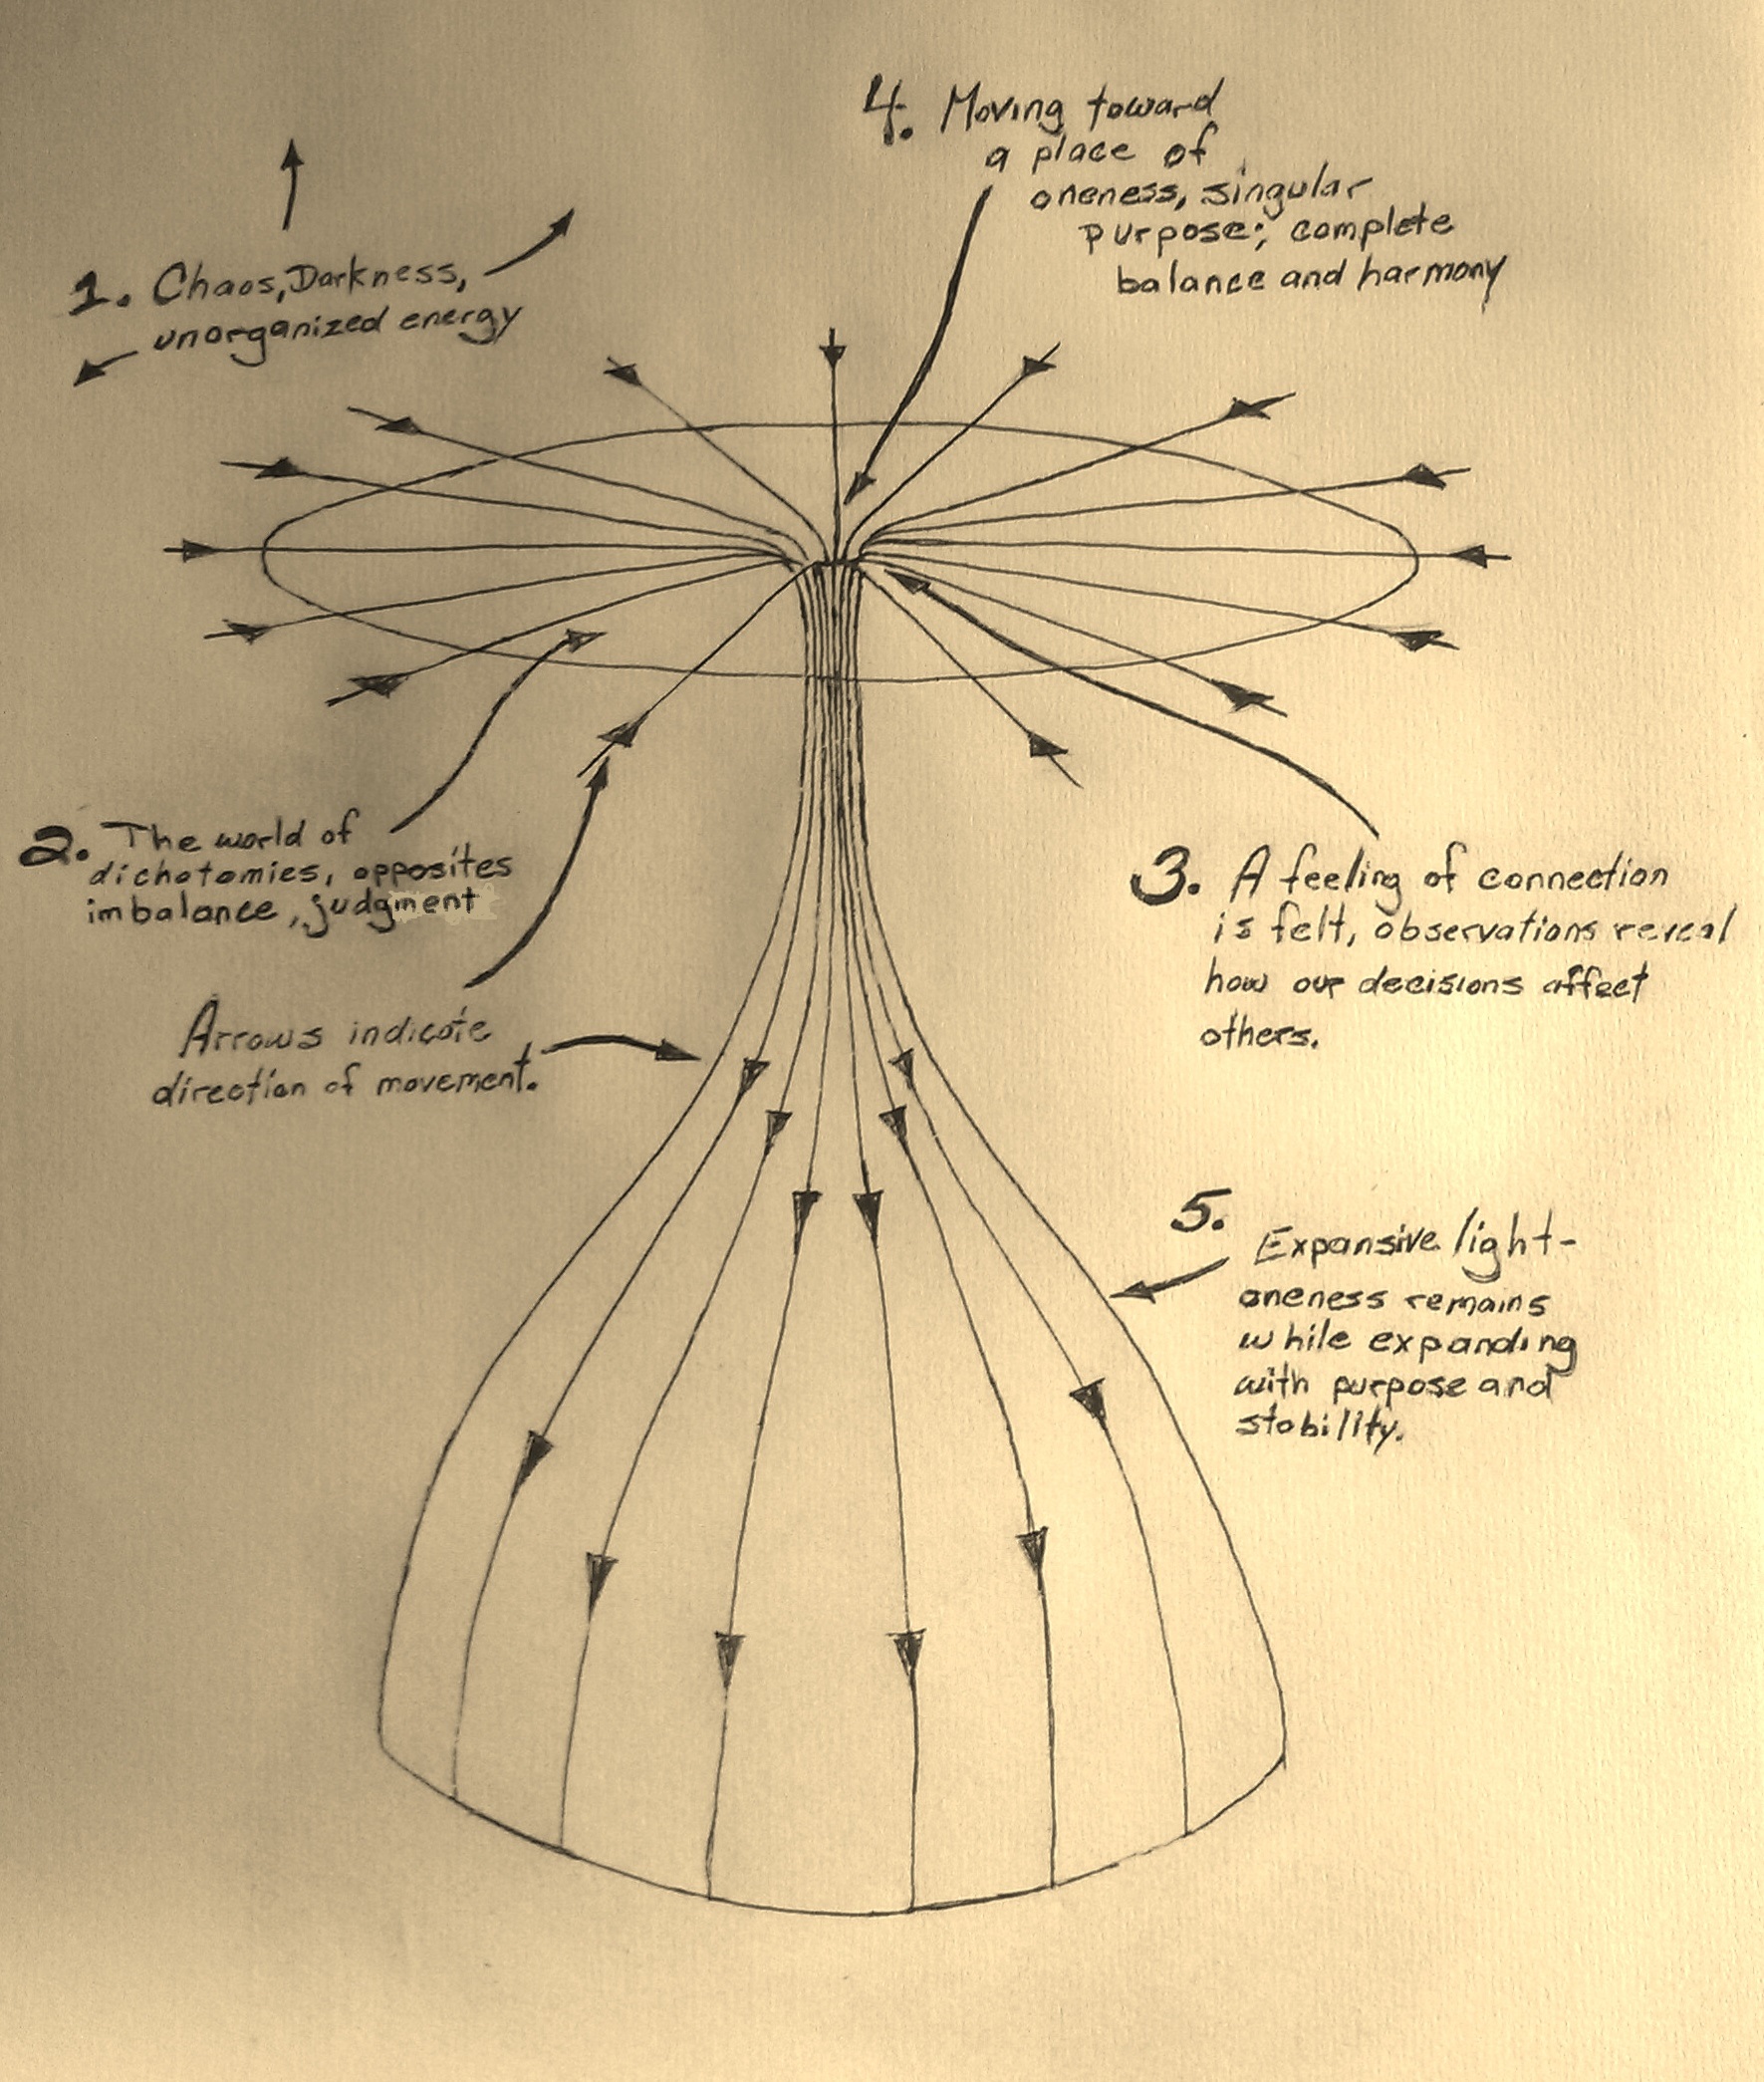 4. Moving toward
a place of
oneness, singular
purpose; complete
balance and harmony
1. Chaos, Darkness,
unorganized energy
2. The world of
dichotomies, opposites
imbalance, judgment
Arrows indicate
direction of movement.
3. A feeling of connection
is felt, observations reveal
how our decisions affect
others.
5. Expansive light-
oneness remains
while expanding
with purpose and
stability.